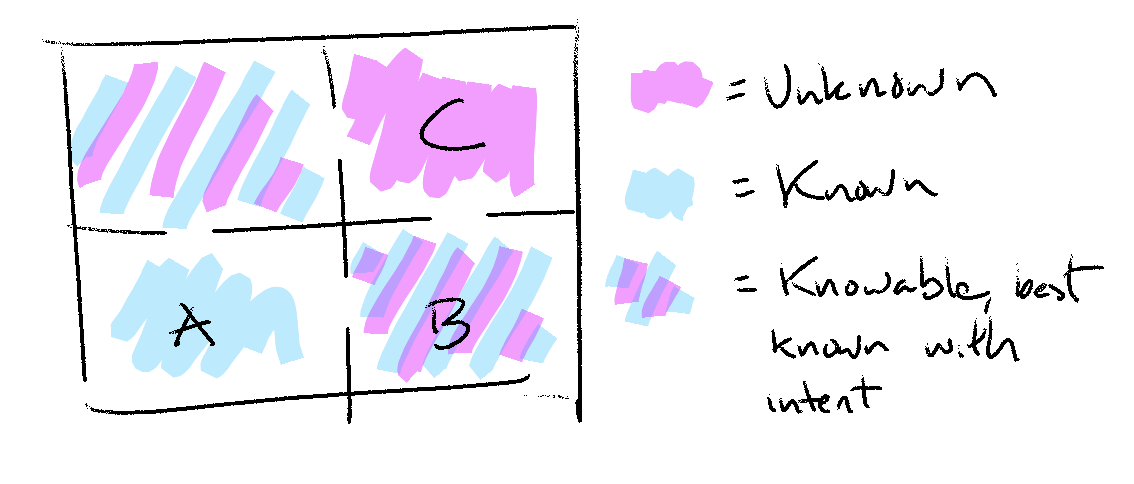 C
A
B
= Unknown
= Known
= Knowable, best
known with
intent